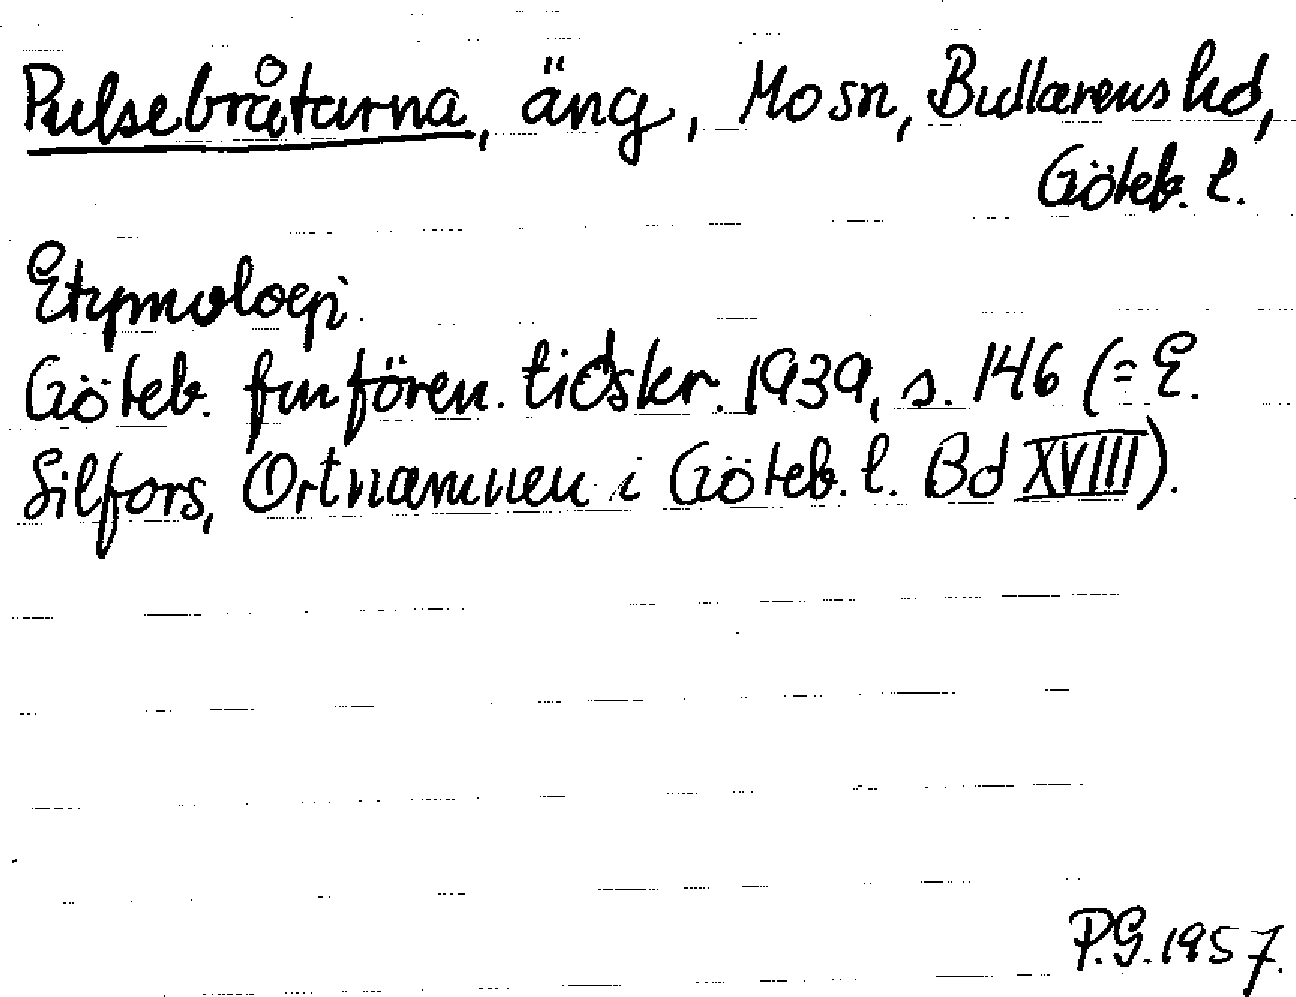 Pulsebråtarna, äng, Mo sn, Bullarens hd,
Göteb. l.
Etymologi.
Göteb. fmfören. tidskr. 1939, s. 146 (= E.
Silfors, Ortnamnen i Göteb. l. Bd XVIII).
P.G. 1957.